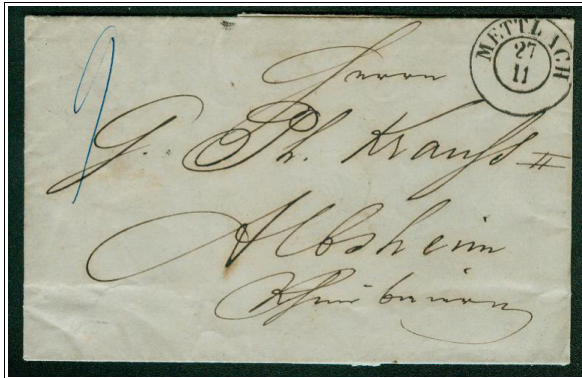 METTLACH
27
11
Herrn
G. Ph. Krauss II
Albsheim
Rheinbaiern